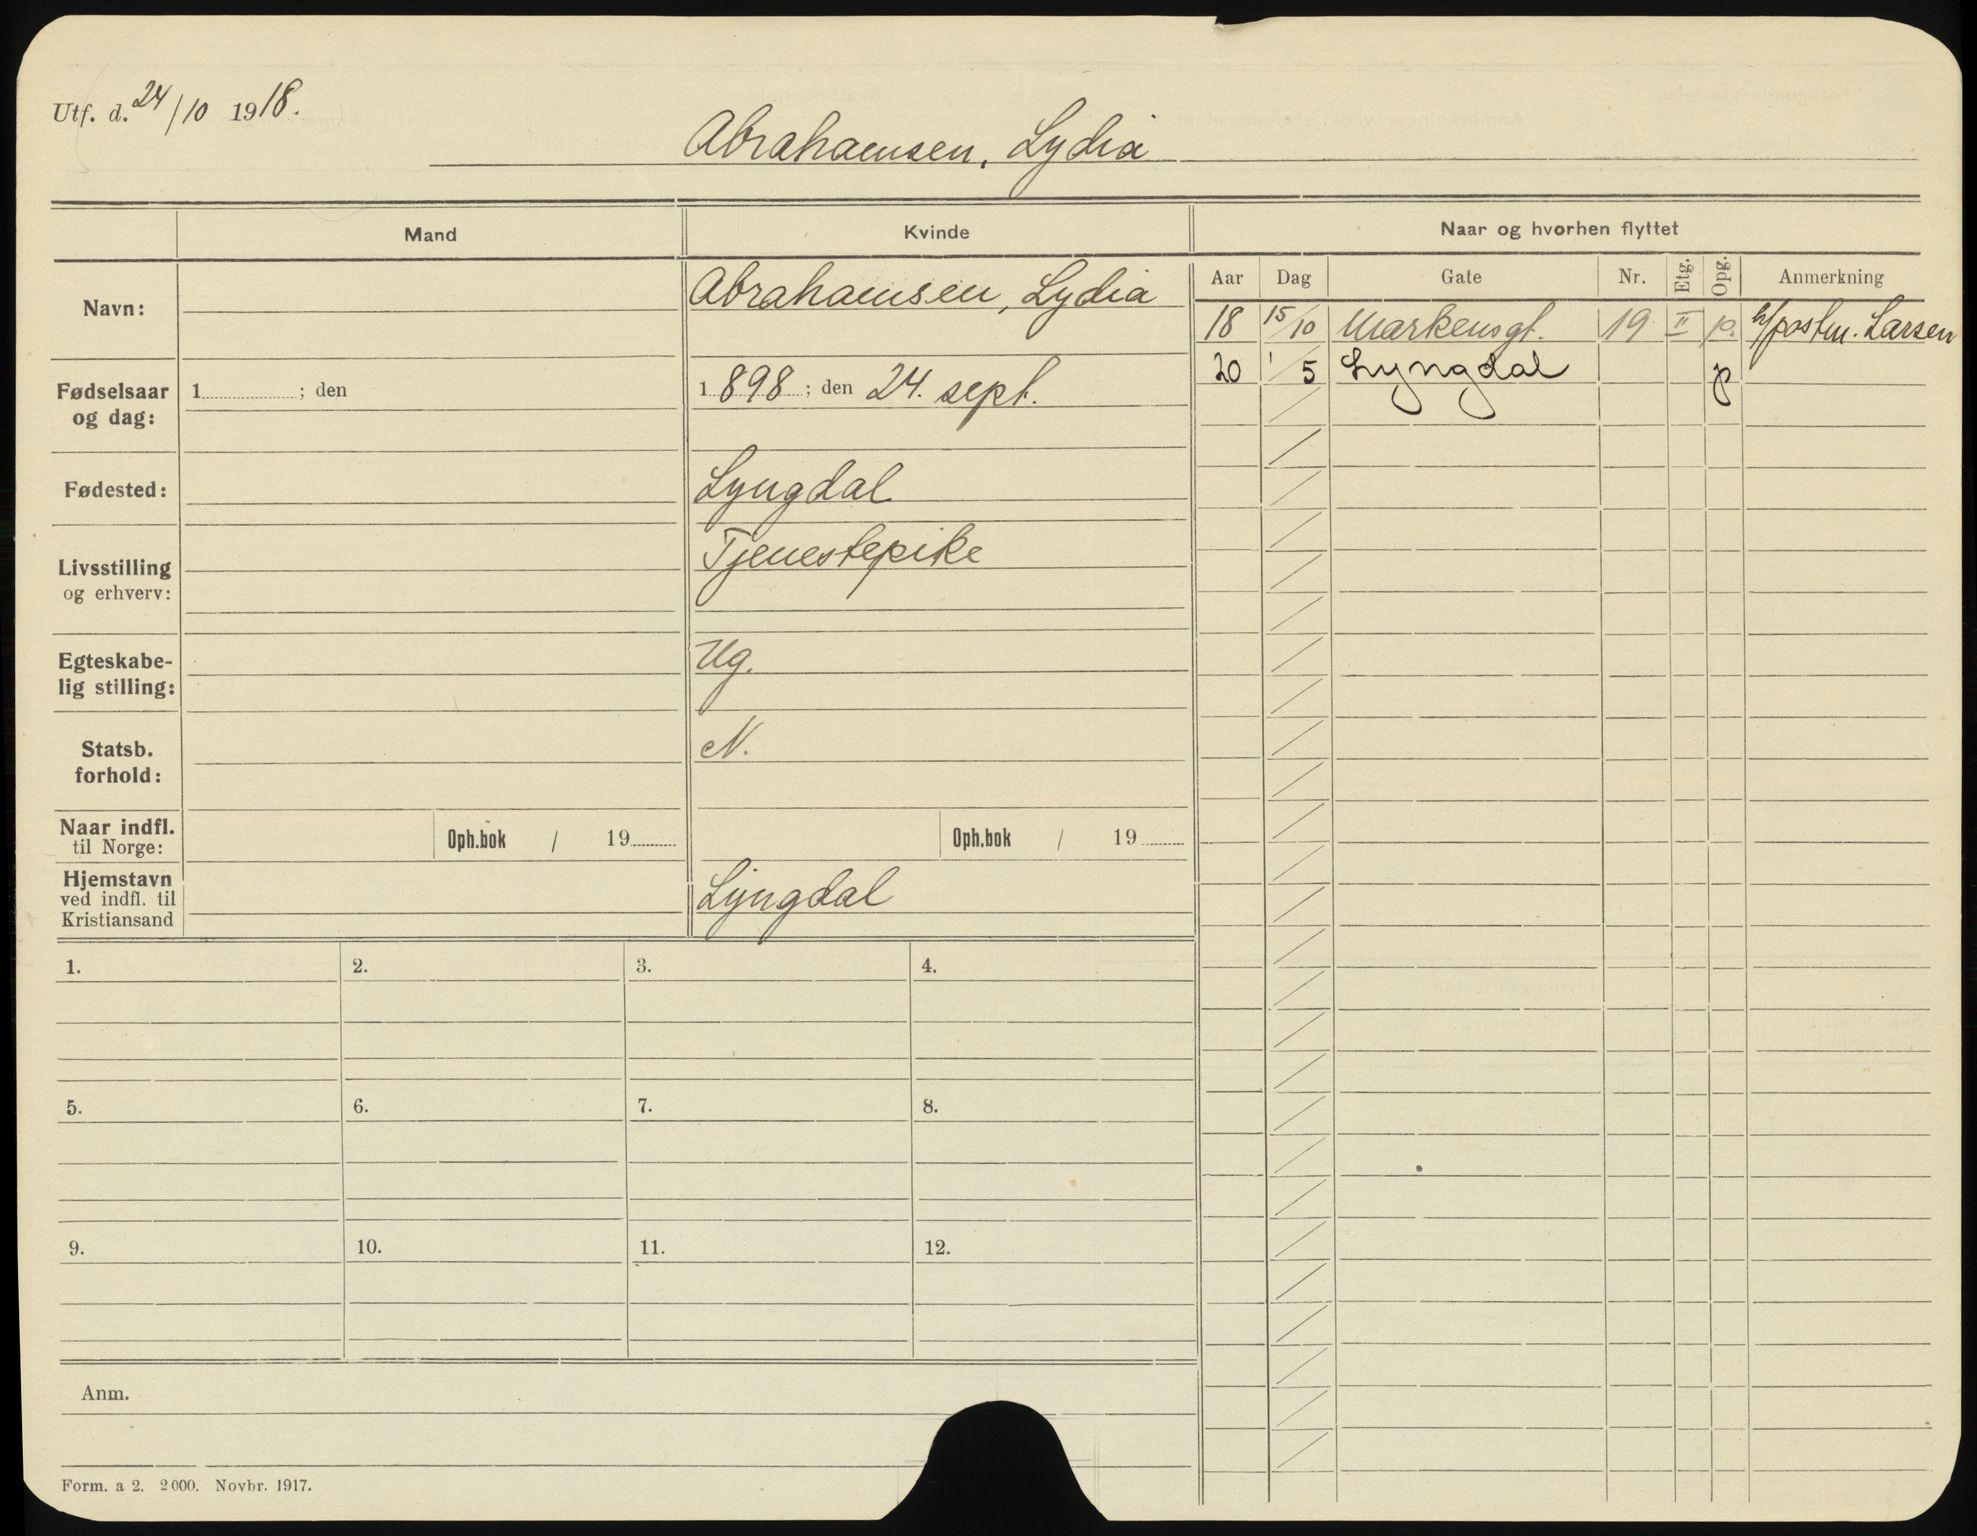 Utf. d. 24/10 1918.
Abrahamsen, Lydia
Mand
Kvinde
Naar og hvorhen flyttet
Aar Dag Gate Nr. Etg. Opg. Anmerkning
18 15/10 Markensgt. 19 II p. h/postm. Larsen
20 1/5 Lyngdal p
Navn:
Abrahamsen, Lydia
Fødselsaar
og dag:
1 ; den
1 898 ; den 24. sept.
Fødested:
Lyngdal
Livsstilling
og erhverv:
Tjenestepike
Egteskabe-
lig stilling:
Ug.
Statsb.
forhold:
N.
Naar indfl.
til Norge:
Oph.bok / 19
Oph.bok / 19
Hjemstavn
ved indfl. til
Kristiansand
Lyngdal
1. 2. 3. 4.
5. 6. 7. 8.
9. 10. 11. 12.
Anm.
Form. a 2. 2000. Novbr. 1917.